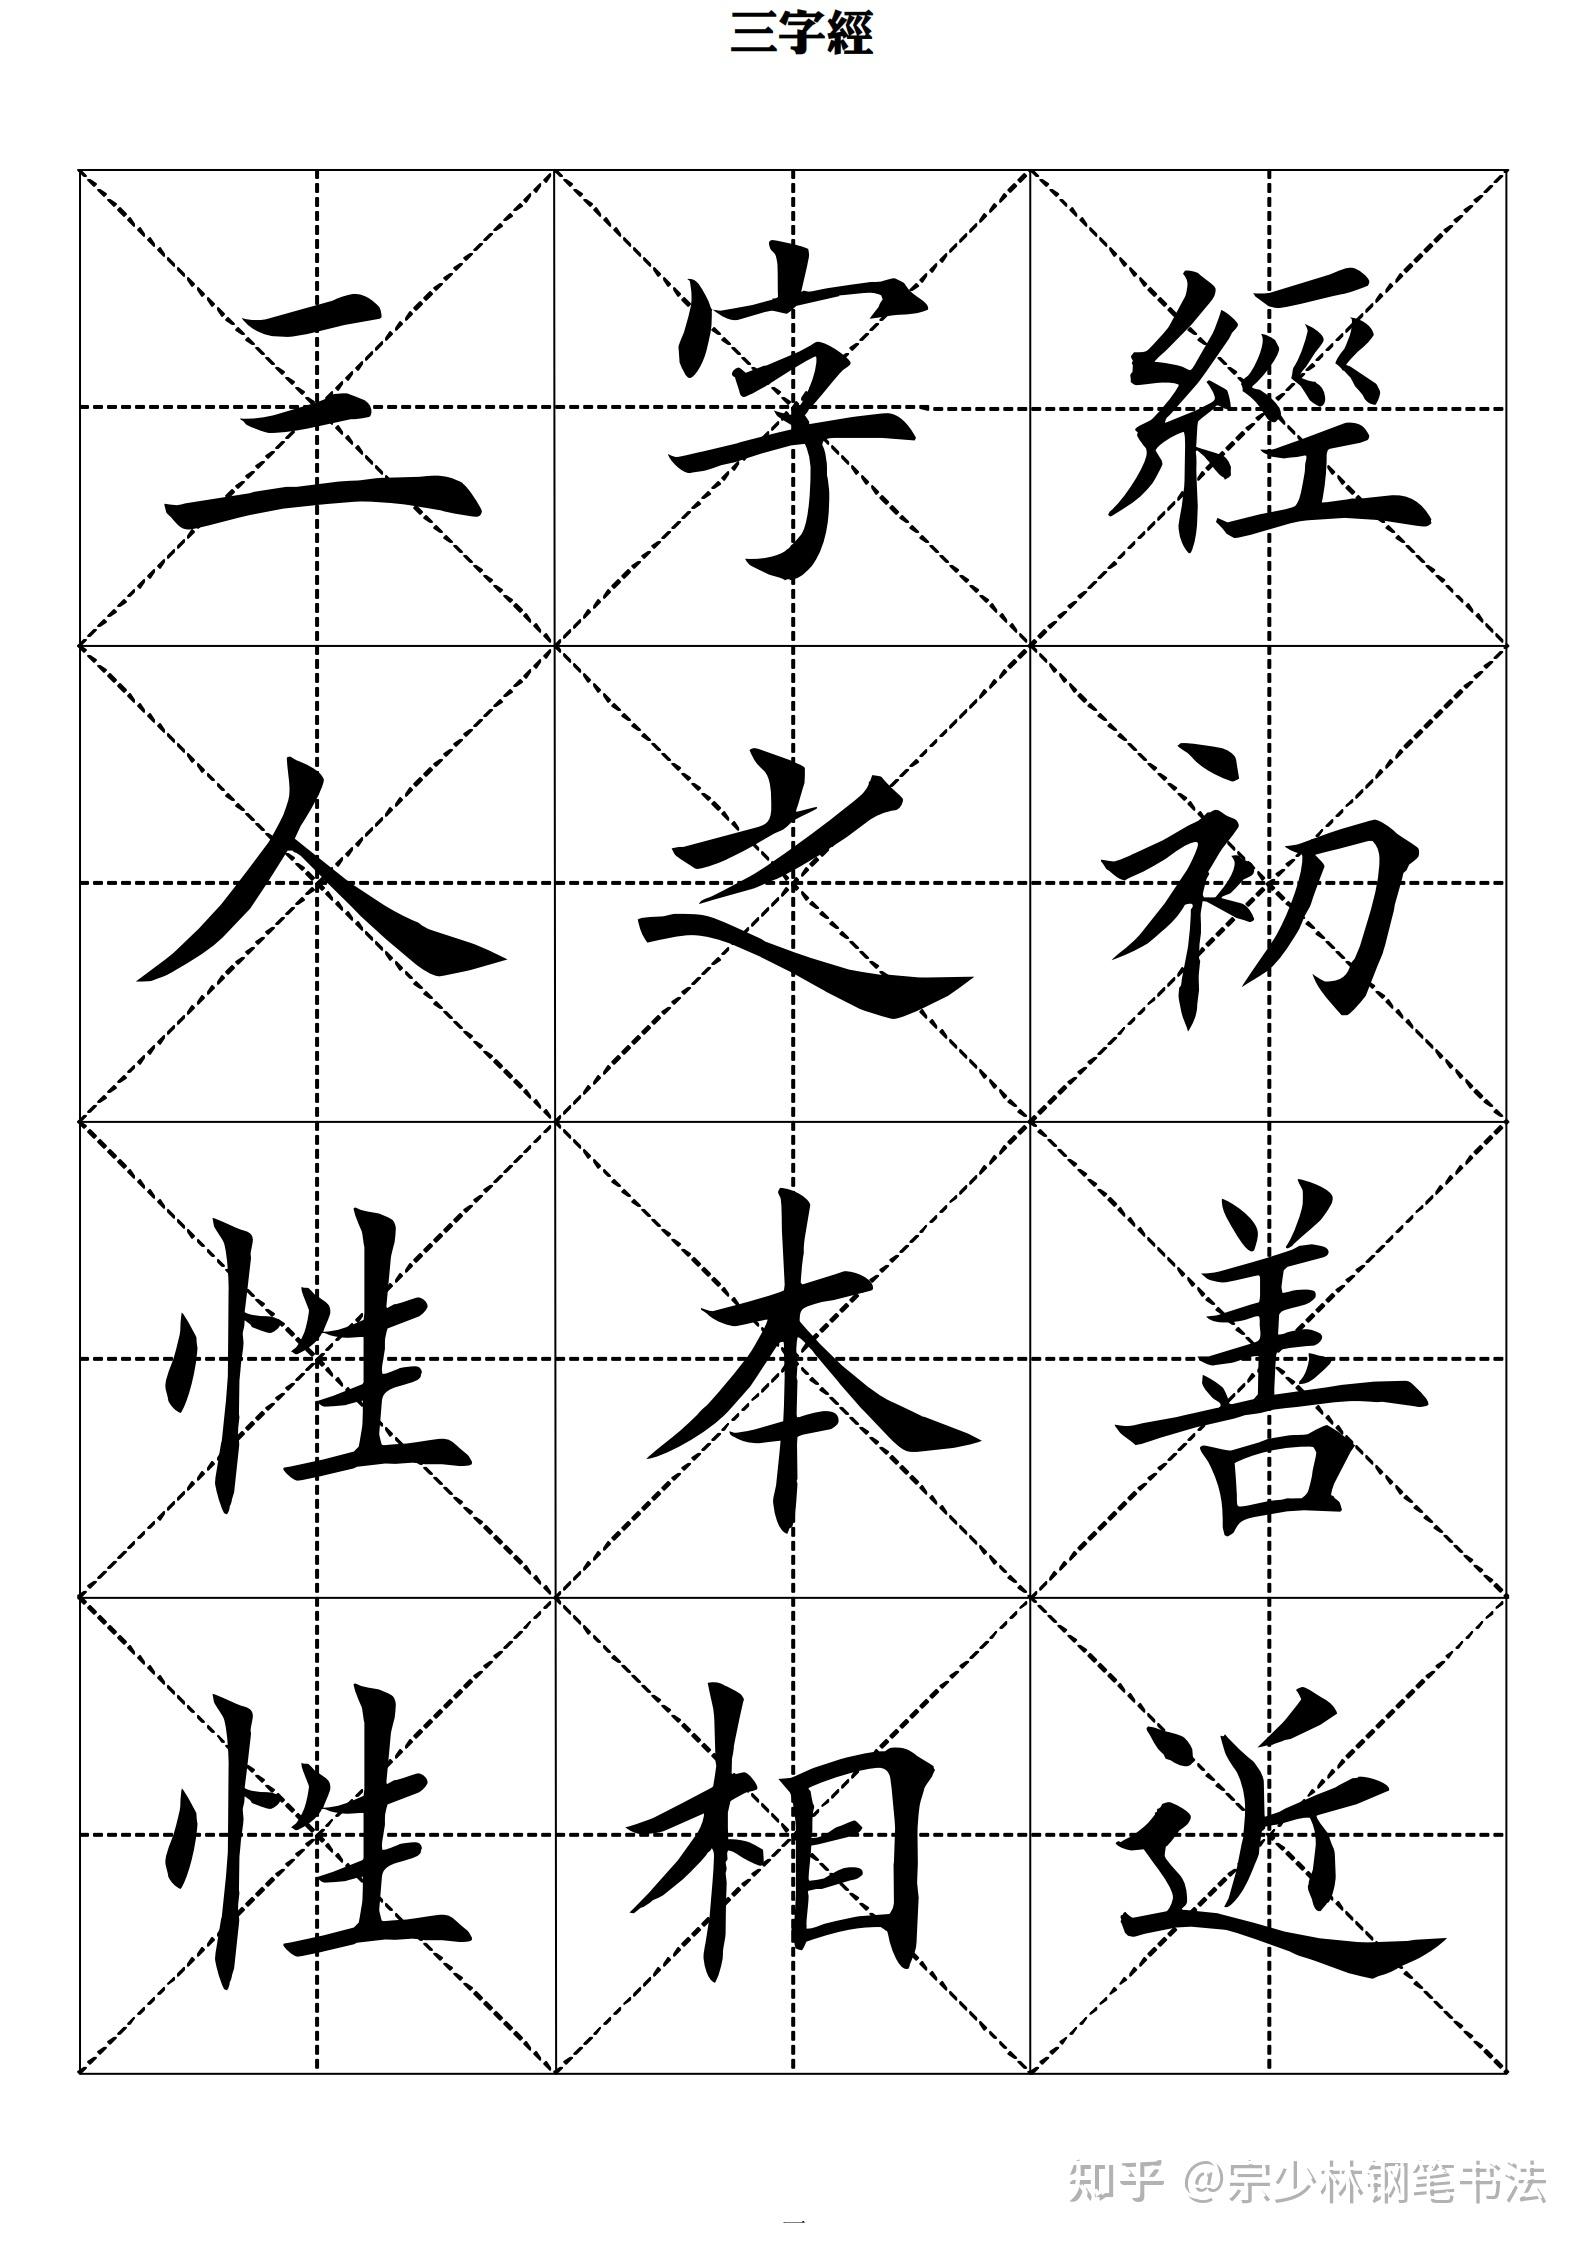 三字經
三字經
人之初
性本善
性相近
知乎 @宗少林钢笔书法
一